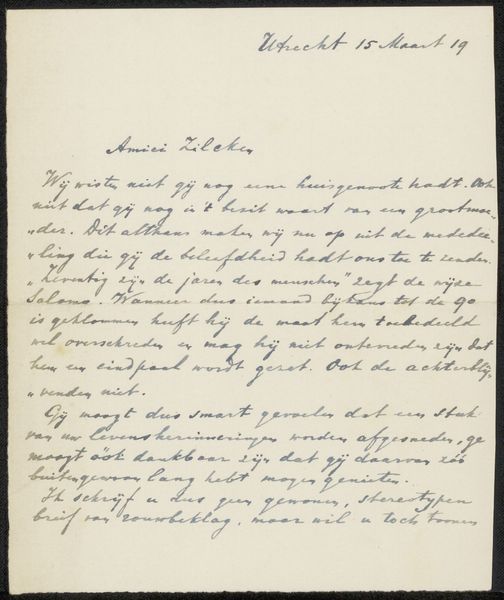 Utrecht 15 Maart 19
Amici Zilcken
Wij wisten niet gij nog eene huisgenoote hadt. Ook
niet dat gij nog in 't bezit waart van een grootmoe-
„der. Dit althans maken wij nu op uit de mededee-
„ling die gij de beleefdheid hadt ons toe te zenden.
„Zeventig zijn de jaren des menschen" zegt de wijze
Salomo. Wanneer dus iemand bijkans tot de 90
is geklommen heeft hij de maat hem toebedeeld
wel overschreden en mag hij niet ontevreden zijn dat
hem een eindpaal wordt gezet. Ook de achterblij-
„venden niet.
Gij moogt dus smart gevoelen dat een stuk
van uw levensherinneringen worden afgesneden, ge
moogt óók dankbaar zijn dat gij daarvan zóó
buitengewoon lang hebt mogen genieten.
Ik schrijf u dus geen gewonen, stereotypen
brief van rouwbeklag, maar wil u toch toonen